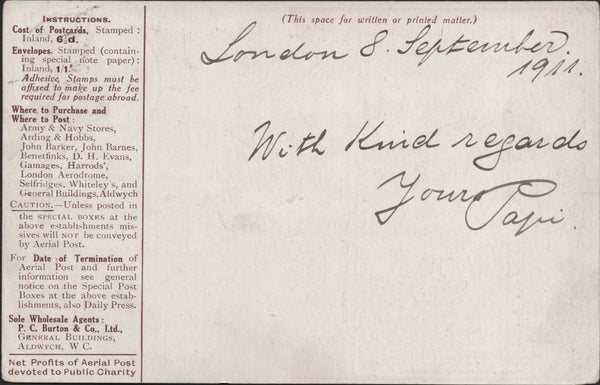 INSTRUCTIONS.
Cost of Postcards, Stamped :
Inland, 6½d.
Envelopes. Stamped (contain-
ing special note paper):
Inland, 1/1.
Adhesive Stamps must be
affixed to make up the fee
required for postage abroad.
Where to Purchase and
Where to Post :
Army & Navy Stores,
Arding & Hobbs,
John Barker, John Barnes,
Benetfinks, D. H. Evans,
Gamages, Harrods',
London Aerodrome,
Selfridges, Whiteley's, and
General Buildings, Aldwych
CAUTION.—Unless posted in
the SPECIAL BOXES at the
above establishments mis-
sives will NOT be conveyed
by Aerial Post.
For Date of Termination of
Aerial Post and further
information see general
notice on the Special Post
Boxes at the above estab-
lishments, also Daily Press.
Sole Wholesale Agents :
P. C. Burton & Co., Ltd.,
GENERAL BUILDINGS,
ALDWYCH, W.C.
Net Profits of Aerial Post
devoted to Public Charity
(This space for written or printed matter.)
London 8. September.
1911.
With Kind regards
Your Papi.